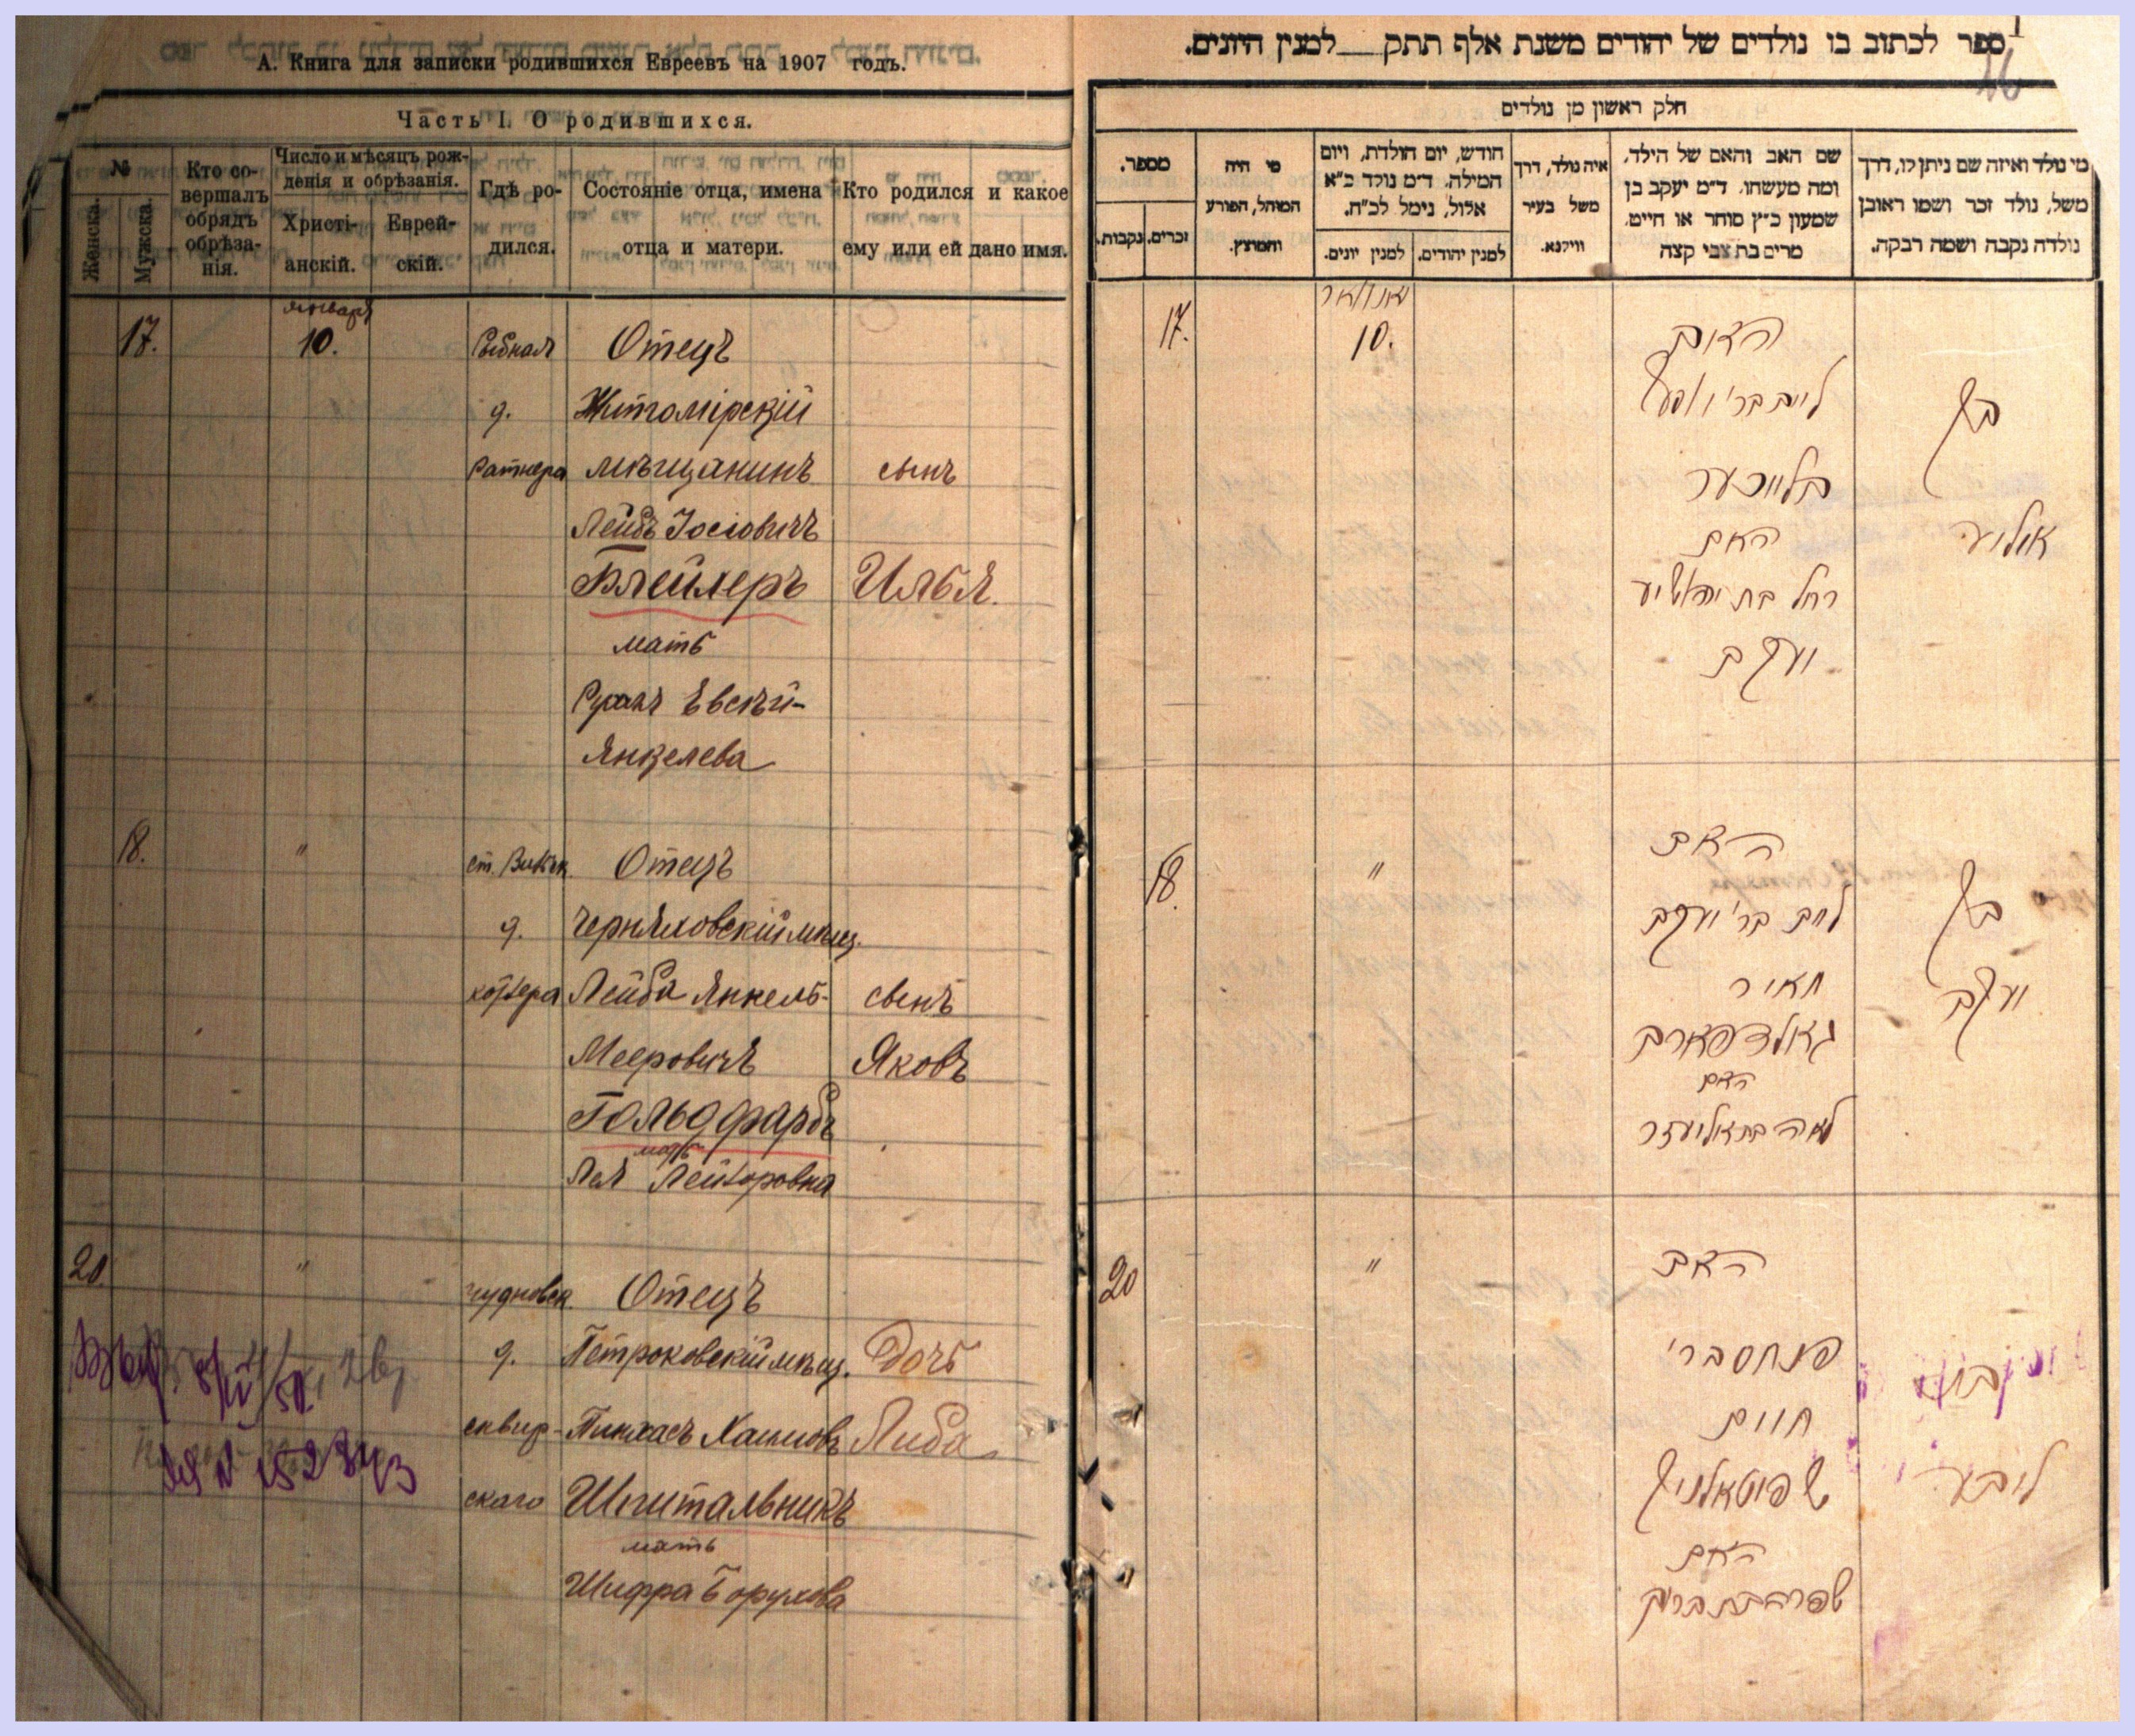 А. Книга для записки родившихся Евреевъ на 1907 годъ.
Часть I. О родившихся.
№
Женска.
Мужска.
Кто совершалъ обрядъ обрѣзанія.
Число и мѣсяцъ рожденія и обрѣзанія.
Христіанскій.
Еврейскій.
Гдѣ родился.
Состояніе отца, имена отца и матери.
Кто родился и какое ему или ей дано имя.
января
17. 10. Рыбная Отецъ
д. Житомірскій
Ратнера мѣщанинъ сынъ
Лейбъ Іосіовичъ
Блейхеръ Илья.
мать
Рухль Евсѣй-
Янкелева
18. " ст. Вильск. Отецъ
д. Черняховскій мѣщ.
Лейба Янкель- сынъ
Мееровичъ Яковъ
Гольдфарбъ
мать
Лея Лейзоровна
20. " чудновск. Отецъ
д. Петроковскій мѣщ. Дочь
сквир- Пинхасъ Хаимовъ Либа
скаго Шпитальникъ
мать
Шифра Борухова
ספר לכתוב בו נולדים של יהודים משנת אלף תתק__ למנין היונים.
חלק ראשון מן נולדים
מספר.
נקבות.
זכרים.
מי היה המוהל, הפורע והמוצץ.
חודש, יום הולדת, ויום המילה. ד״מ נולד כ״א אלול, נימל לכ״ח.
למנין יונים.
למנין יהודים.
איה נולד, דרך משל בעיר ווילנא.
שם האב והאם של הילד, ומה מעשהו. ד״מ יעקב בן שמעון כ״ץ סוחר או חייט. מרים בת צבי קצה
מי נולד ואיזה שם ניתן לו, דרך משל, נולד זכר ושמו ראובן נולדה נקבה ושמה רבקה.
יאנואר
17. 10. האב
ליב בר׳ יוסף בן
בלייכער
האם אליע
רחל בת
יעקב
18. " האב
ליב בר׳ יעקב בן
מאיר יעקב
גאלדפארב
האם
לאה בת אליעזר
20 " האב
פנחס בר׳
חיים
שפיטאלניק ליבע
האם
שפרה בת ברוך